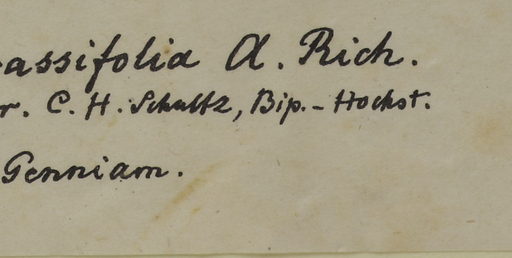 assifolia A. Rich.
r. C. H. Schultz, Bip. - Hochst.
Genniam.